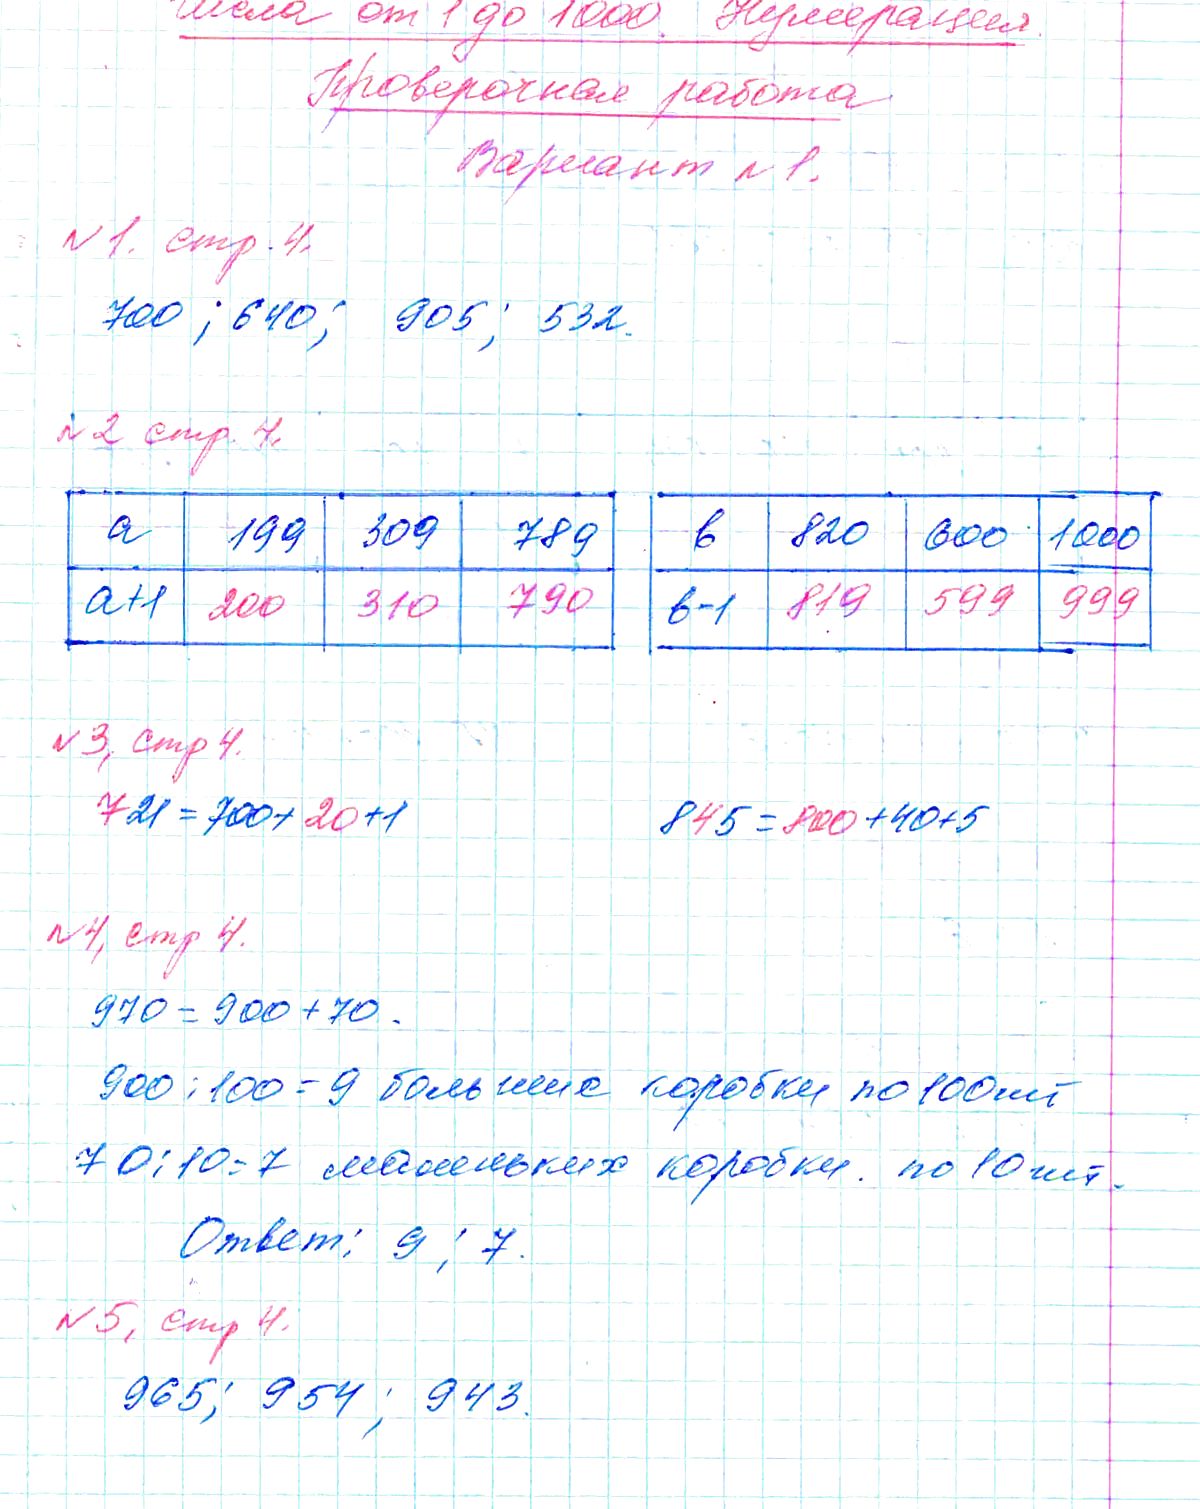 Числа от 1 до 1000. Нумерация.
Проверочная работа
Вариант №1.
№1. стр. 4.
700; 640; 905; 532.
№2 стр. 4.
а 199 309 789 в 820 600 1000
а+1 200 310 790 в-1 819 599 999
№3, стр 4.
721=700+20+1 845=800+40+5
№4, стр 4.
970=900+70.
900:100=9 больших коробки по 100шт
70:10=7 маленьких коробки. по 10шт.
Ответ: 9; 7.
№5, стр 4.
965; 954; 943.